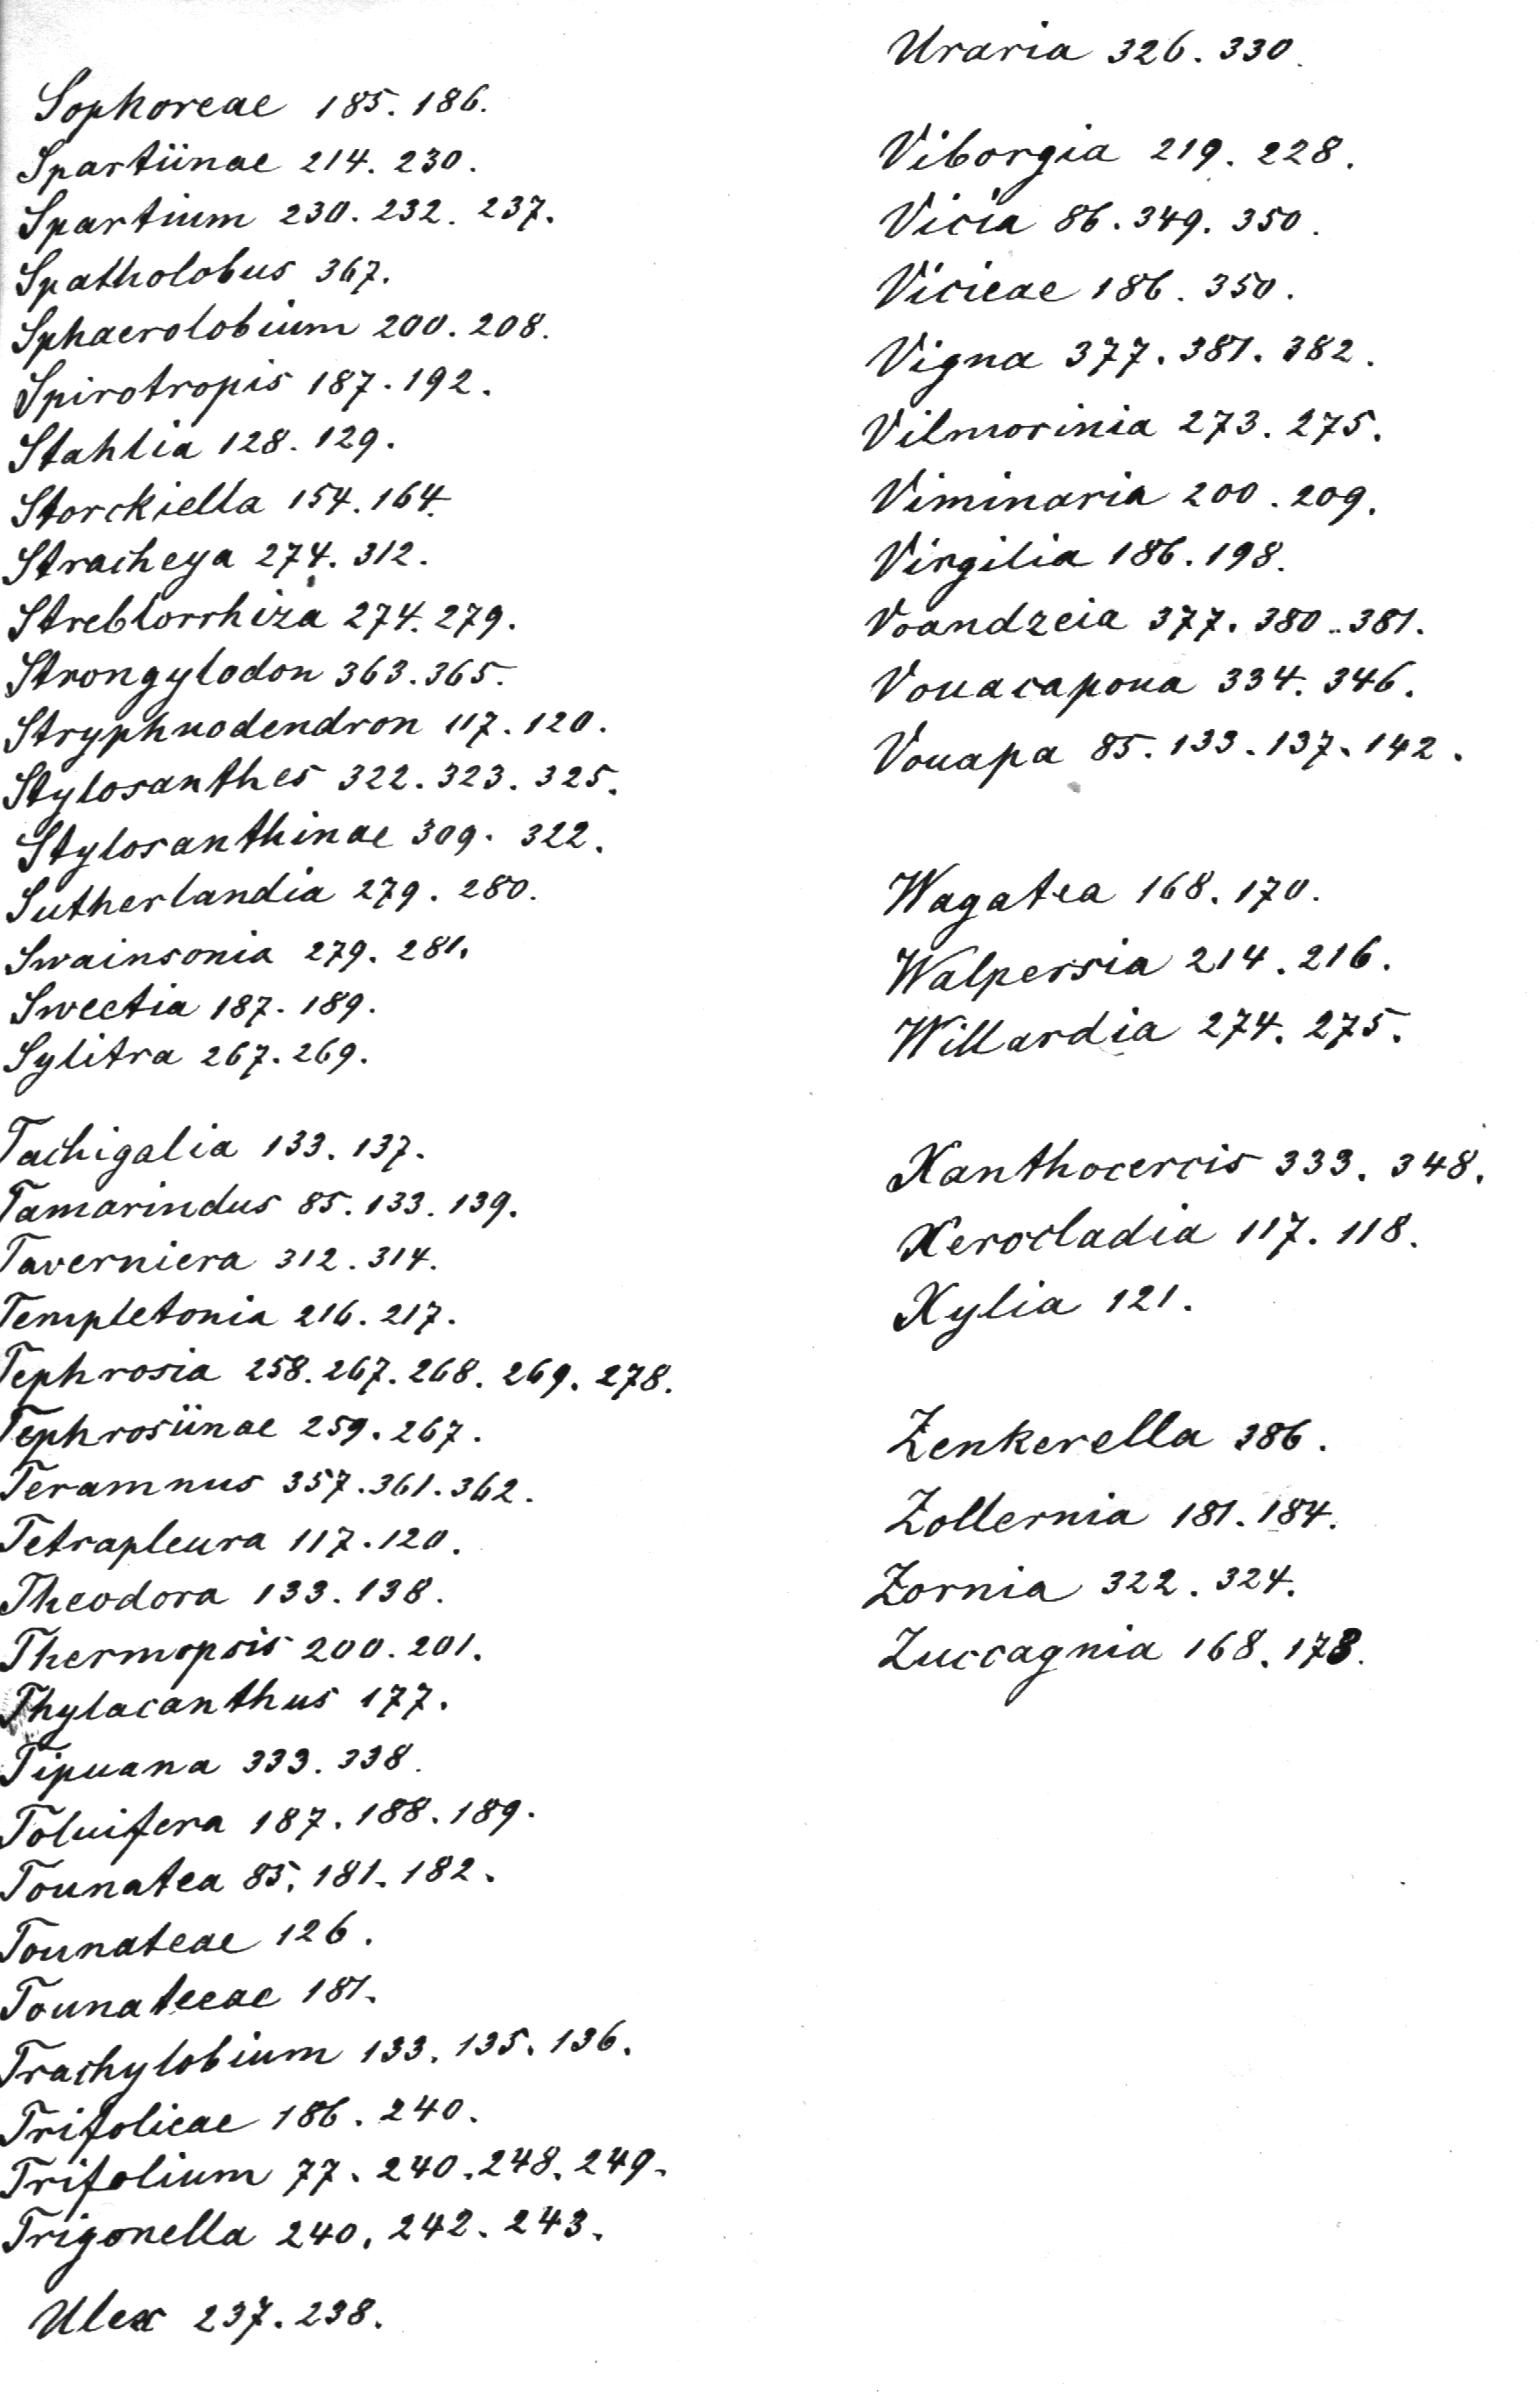 Sophoreae 185. 186.
Spartiinae 214. 230.
Spartium 230. 232. 237.
Spatholobus 367.
Sphaerolobium 200. 208.
Spirotropis 187. 192.
Stahlia 128. 129.
Storckiella 154. 164.
Stracheya 274. 312.
Streblorrhiza 274. 279.
Strongylodon 363. 365.
Stryphnodendron 117. 120.
Stylosanthes 322. 323. 325.
Stylosanthinae 309. 322.
Sutherlandia 279. 280.
Swainsonia 279. 281.
Sweetia 187. 189.
Sylitra 267. 269.
Tachigalia 133. 137.
Tamarindus 85. 133. 139.
Taverniera 312. 314.
Templetonia 216. 217.
Tephrosia 258. 267. 268. 269. 278.
Tephrosiinae 259. 267.
Teramnus 357. 361. 362.
Tetrapleura 117. 120.
Theodora 133. 138.
Thermopsis 200. 201.
Thylacanthus 177.
Tipuana 333. 338.
Toluifera 187. 188. 189.
Tounatea 85. 181. 182.
Tounateae 126.
Tounateeae 181.
Trachylobium 133. 135. 136.
Trifolieae 186. 240.
Trifolium 77. 240. 248. 249.
Trigonella 240. 242. 243.
Ulex 237. 238.
Uraria 326. 330.
Viborgia 219. 228.
Vicia 86. 349. 350.
Vicieae 186. 350.
Vigna 377. 381. 382.
Vilmorinia 273. 275.
Viminaria 200. 209.
Virgilia 186. 198.
Voandzeia 377. 380. 381.
Vouacapoua 334. 346.
Vouapa 85. 133. 137. 142.
Wagatea 168. 170.
Walpersia 214. 216.
Willardia 274. 275.
Xanthocercis 333. 348.
Xerocladia 117. 118.
Xylia 121.
Zenkerella 386.
Zollernia 181. 184.
Zornia 322. 324.
Zuccagnia 168. 173.